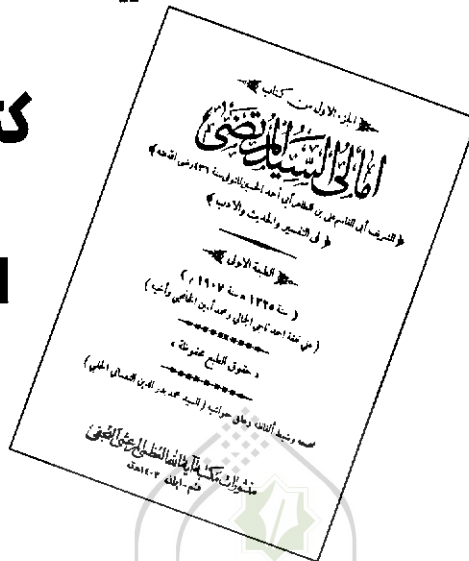 كت
ا
الجزء الاول من كتاب
أمالي السيد المرتضى
﴿ الشريف أبي القاسم علي بن الطاهر أبي أحمد الحسين المتوفى سنة ٤٣٦ رضي الله عنه ﴾
﴿ في التفسير والحديث والادب ﴾
الطبعة الاولى
( سنة ١٣٢٥ ه سنة ١٩٠٧ م )
( على نفقة احمد ناجي الجمالي ومحمد أمين الخانجي وأخيه )
« حقوق الطبع محفوظة »
صححه وضبط ألفاظه وعلق حواشيه ( السيد محمد بدر الدين النعساني الحلبي )
منشورات مكتبة آية الله العظمى المرعشي النجفي
قم - ايران ١٤٠٣ هق